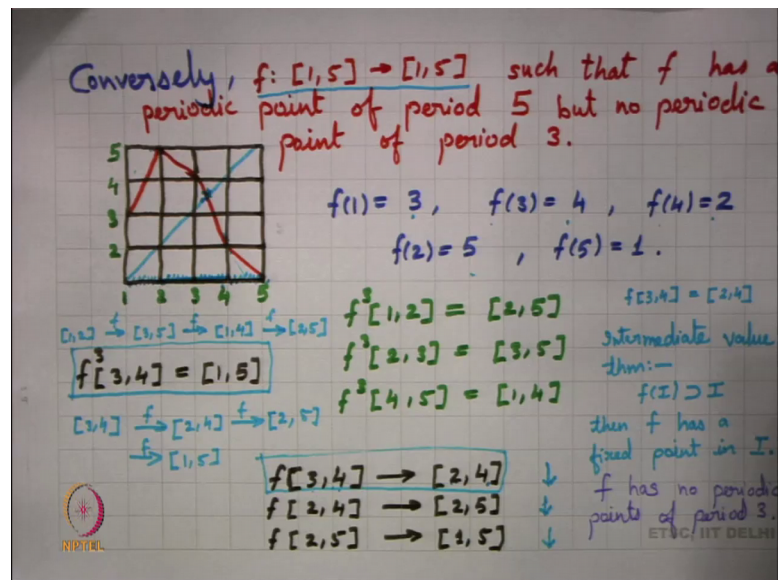 Conversely, f: [1,5] → [1,5] such that f has a
periodic point of period 5 but no periodic
point of period 3.
5
4
3
2
1 2 3 4 5
f(1) = 3, f(3) = 4, f(4) = 2
f(2) = 5, f(5) = 1.
[1,2] →f [3,5] →f [1,4] →f [2,5]
f³[3,4] = [1,5]
[3,4] →f [2,4] →f [2,5]
→f [1,5]
f³[1,2] = [2,5]
f³[2,3] = [3,5]
f³[4,5] = [1,4]
f[3,4] → [2,4] ↓
f[2,4] → [2,5] ↓
f[2,5] → [1,5] ↓
f[3,4] = [2,4]
Intermediate value
thm:—
f(I) ⊃ I
then f has a
fixed point in I.
f has no periodic
points of period 3.
NPTEL
ETSC, IIT DELHI